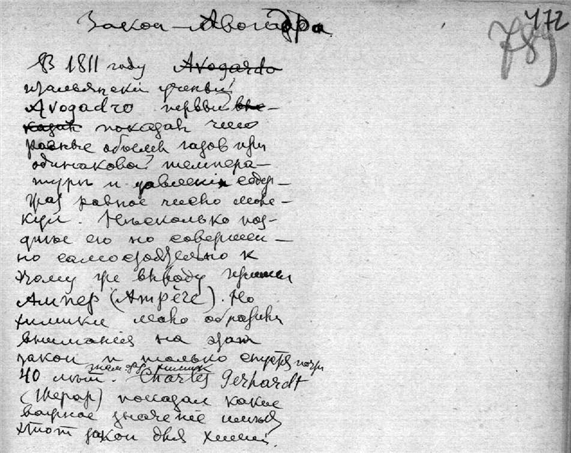 Закон Авогадра
472
789
В 1811 году Avogardo
итальянский ученый
Avogadro первый вы-
казал показал что
равные объемы газов при
одинаковой темпера-
туры и давлении содер-
жат равное число моле-
кул. Несколько поз-
днее его но совершен-
но самостоятельно к
тому же выводу пришел
Ампер (Ampère). Но
химики мало обратили
внимания на этот
закон и только спустя почти
40 лет. химик Charles Gerhardt
(Жерар) показал какое
важное значение имеет
этот закон для химии.